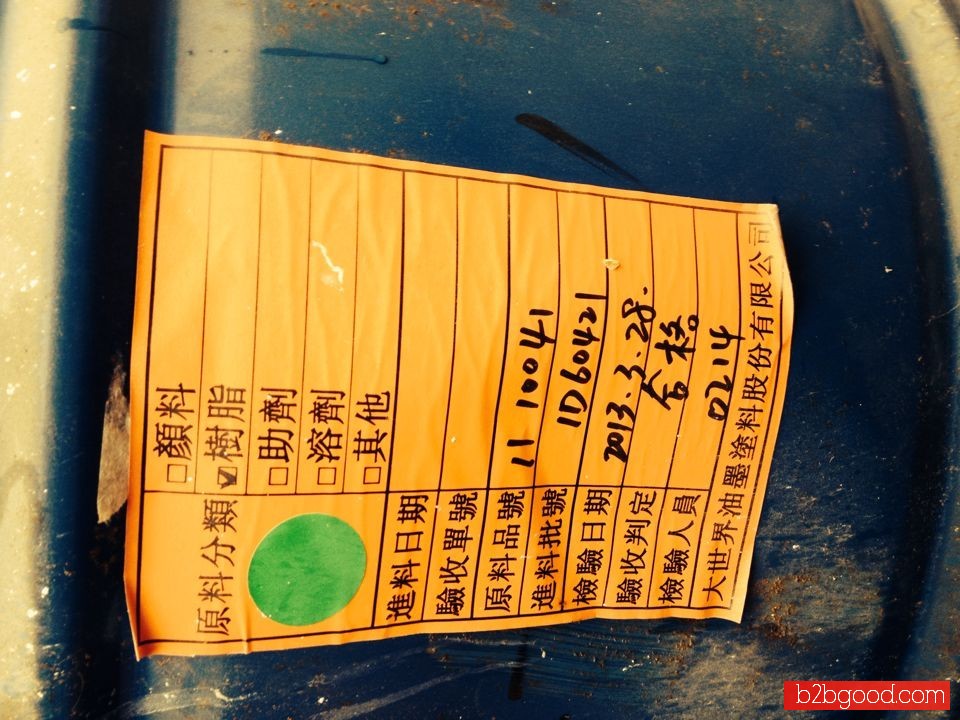 原料分類
□顏料
☑樹脂
□助劑
□溶劑
□其他
進料日期
驗收單號
原料品號 11 10041
進料批號 1D60421
檢驗日期 2013.3.28.
驗收判定 合格。
檢驗人員 0214
大世界油墨塗料股份有限公司
b2bgood.com